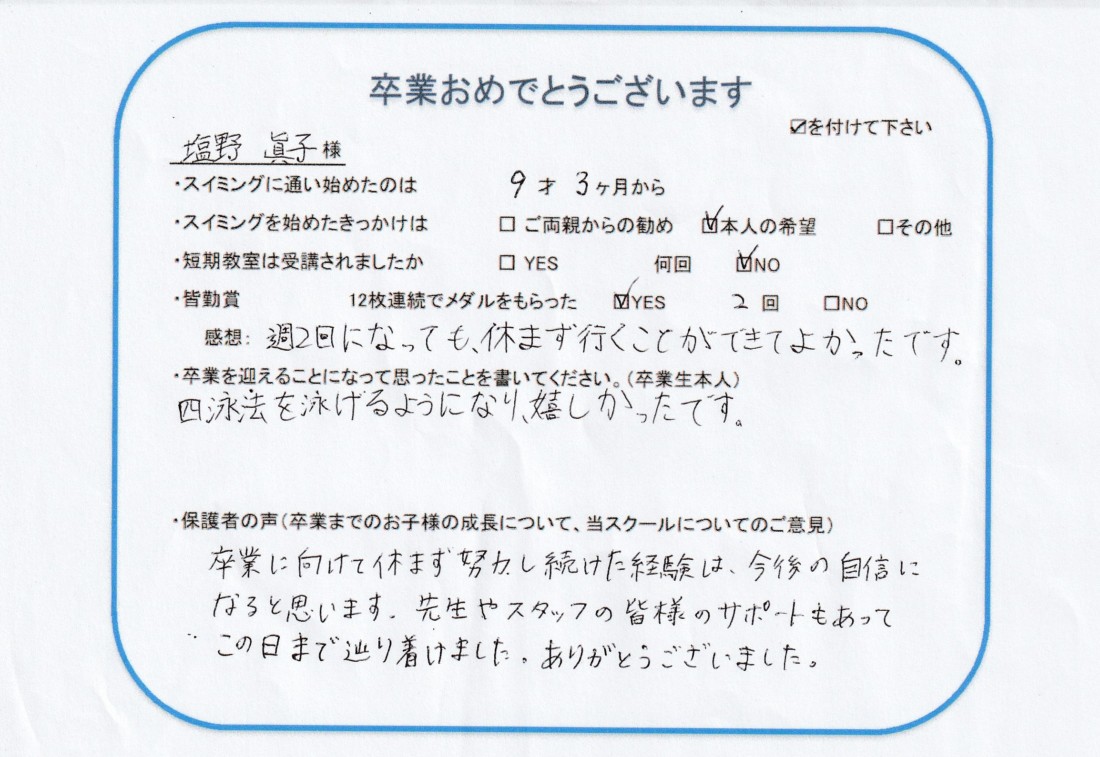 卒業おめでとうございます
☑を付けて下さい
塩野 眞子様
・スイミングに通い始めたのは 9才 3ヶ月から
・スイミングを始めたきっかけは □ ご両親からの勧め ☑本人の希望 □その他
・短期教室は受講されましたか □ YES 何回 ☑NO
・皆勤賞 12枚連続でメダルをもらった ☑YES 2回 □NO
感想: 週2回になっても、休まず行くことができてよかったです。
・卒業を迎えることになって思ったことを書いてください。(卒業生本人)
四泳法を泳げるようになり、嬉しかったです。
・保護者の声(卒業までのお子様の成長について、当スクールについてのご意見)
卒業に向けて休まず努力し続けた経験は、今後の自信に
なると思います。先生やスタッフの皆様のサポートもあって
この日まで辿り着けました。ありがとうございました。